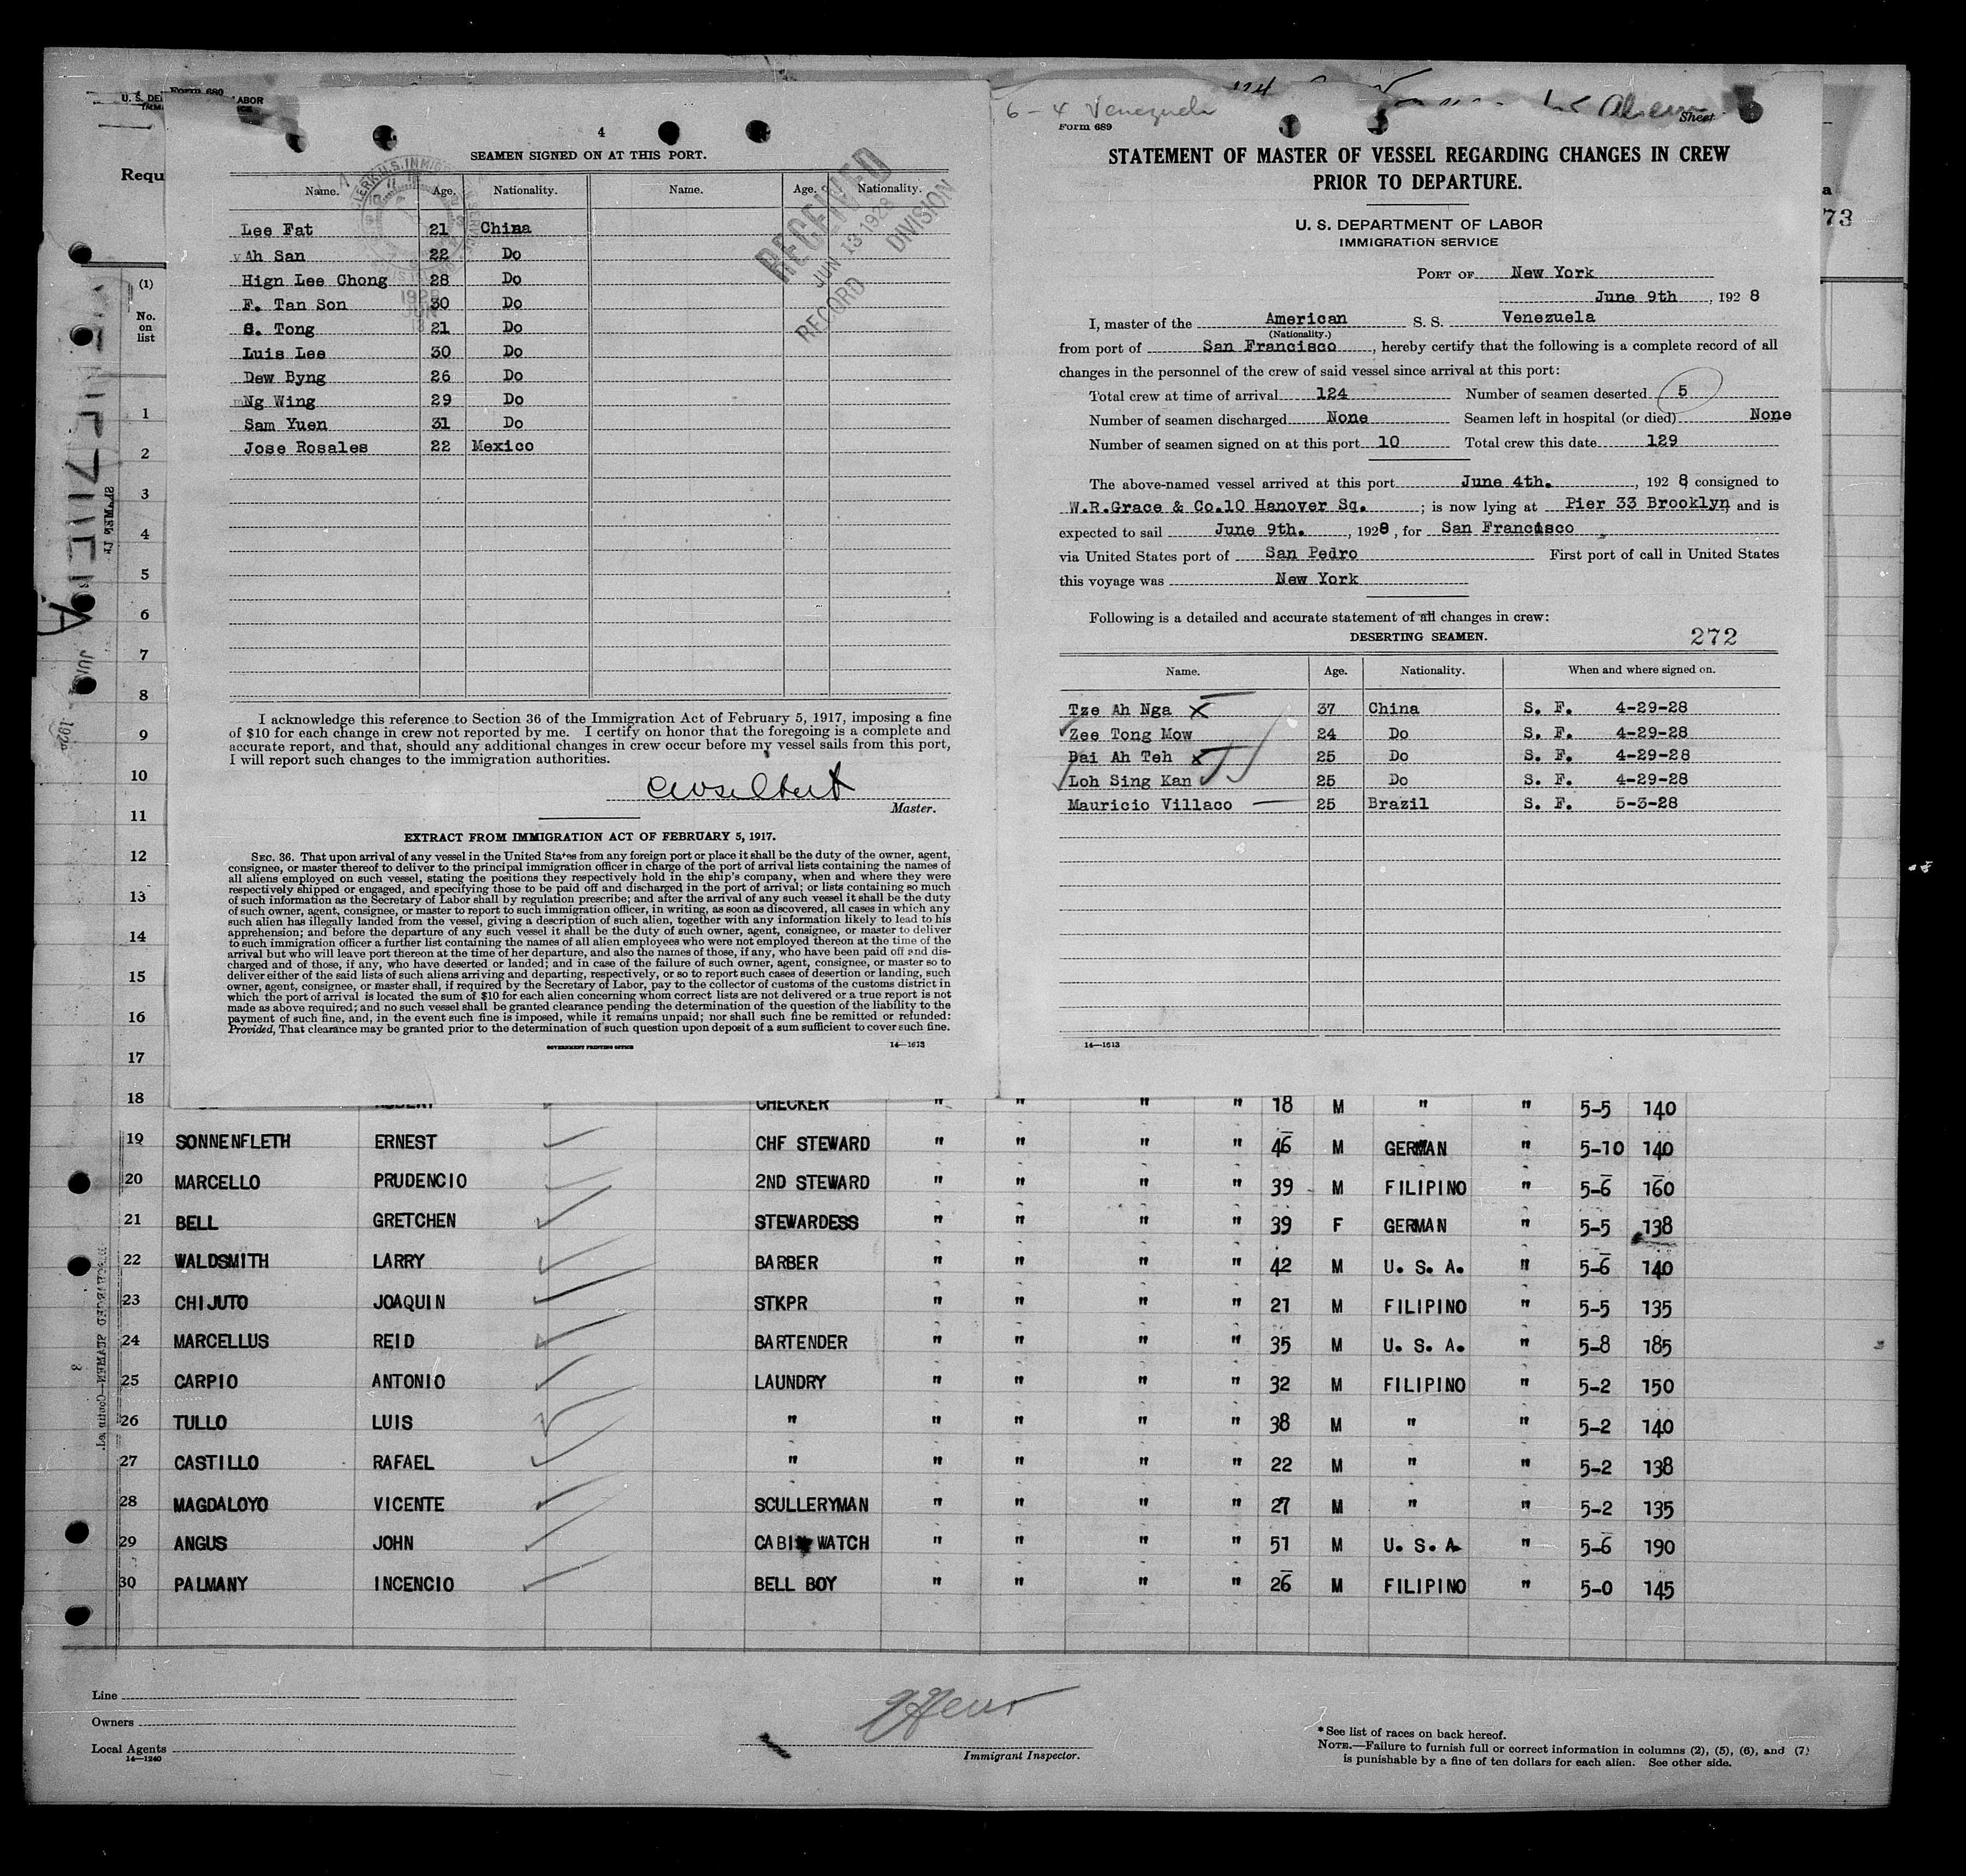 Form 680
U. S. DE
ABOR
Requ
(1)
No.
on
list
1
2
3
4
5
6
7
8
9
10
11
12
13
14
15
16
17
4
SEAMEN SIGNED ON AT THIS PORT.
Name. Age. Nationality. Name. Age. Nationality.
Lee Fat 21 China
Ah San 22 Do
Hign Lee Chong 28 Do
F. Tan Son 30 Do
S. Tong 21 Do
Luis Lee 30 Do
Dew Byng 26 Do
Ng Wing 29 Do
Sam Yuen 31 Do
Jose Rosales 22 Mexico
RECEIVED
JUN 13 1928
RECORD DIVISION
I acknowledge this reference to Section 36 of the Immigration Act of February 5, 1917, imposing a fine
of $10 for each change in crew not reported by me. I certify on honor that the foregoing is a complete and
accurate report, and that, should any additional changes in crew occur before my vessel sails from this port,
I will report such changes to the immigration authorities.
Master.
EXTRACT FROM IMMIGRATION ACT OF FEBRUARY 5, 1917.
SEC. 36. That upon arrival of any vessel in the United States from any foreign port or place it shall be the duty of the owner, agent,
consignee, or master thereof to deliver to the principal immigration officer in charge of the port of arrival lists containing the names of
all aliens employed on such vessel, stating the positions they respectively hold in the ship's company, when and where they were
respectively shipped or engaged, and specifying those to be paid off and discharged in the port of arrival; or lists containing so much
of such information as the Secretary of Labor shall by regulation prescribe; and after the arrival of any such vessel it shall be the duty
of such owner, agent, consignee, or master to report to such immigration officer, in writing, as soon as discovered, all cases in which any
such alien has illegally landed from the vessel, giving a description of such alien, together with any information likely to lead to his
apprehension; and before the departure of any such vessel it shall be the duty of such owner, agent, consignee, or master to deliver
to such immigration officer a further list containing the names of all alien employees who were not employed thereon at the time of the
arrival but who will leave port thereon at the time of her departure, and also the names of those, if any, who have been paid off and dis-
charged and of those, if any, who have deserted or landed; and in case of the failure of such owner, agent, consignee, or master so to
deliver either of the said lists of such aliens arriving and departing, respectively, or so to report such cases of desertion or landing, such
owner, agent, consignee, or master shall, if required by the Secretary of Labor, pay to the collector of customs of the customs district in
which the port of arrival is located the sum of $10 for each alien concerning whom correct lists are not delivered or a true report is not
made as above required; and no such vessel shall be granted clearance pending the determination of the question of the liability to the
payment of such fine, and, in the event such fine is imposed, while it remains unpaid; nor shall such fine be remitted or refunded:
Provided, That clearance may be granted prior to the determination of such question upon deposit of a sum sufficient to cover such fine.
GOVERNMENT PRINTING OFFICE 14—1613
6-4 Venezuela
Form 689
Sheet
STATEMENT OF MASTER OF VESSEL REGARDING CHANGES IN CREW
PRIOR TO DEPARTURE.
U. S. DEPARTMENT OF LABOR
IMMIGRATION SERVICE
PORT OF New York
June 9th, 1928
I, master of the American S. S. Venezuela
(Nationality.)
from port of San Francisco, hereby certify that the following is a complete record of all
changes in the personnel of the crew of said vessel since arrival at this port:
Total crew at time of arrival 124 Number of seamen deserted 5
Number of seamen discharged None Seamen left in hospital (or died) None
Number of seamen signed on at this port 10 Total crew this date 129
The above-named vessel arrived at this port June 4th., 1928, consigned to
W.R.Grace & Co.10 Hanover Sq.; is now lying at Pier 33 Brooklyn, and is
expected to sail June 9th., 1928, for San Francisco
via United States port of San Pedro First port of call in United States
this voyage was New York
Following is a detailed and accurate statement of all changes in crew:
DESERTING SEAMEN. 272
Name. Age. Nationality. When and where signed on.
Tze Ah Nga X 37 China S. F. 4-29-28
Zee Tong Mow 24 Do S. F. 4-29-28
Bai Ah Teh X 25 Do S. F. 4-29-28
Loh Sing Kan 25 Do S. F. 4-29-28
Mauricio Villaco 25 Brazil S. F. 5-3-28
14—1613
a
73
18 ROBERT CHECKER " " " " 18 M " " 5-5 140
19 SONNENFLETH ERNEST CHF STEWARD " " " " 46 M GERMAN " 5-10 140
20 MARCELLO PRUDENCIO 2ND STEWARD " " " " 39 M FILIPINO " 5-6 160
21 BELL GRETCHEN STEWARDESS " " " " 39 F GERMAN " 5-5 138
22 WALDSMITH LARRY BARBER " " " " 42 M U. S. A. " 5-6 140
23 CHIJUTO JOAQUIN STKPR " " " " 21 M FILIPINO " 5-5 135
24 MARCELLUS REID BARTENDER " " " " 35 M U. S. A. " 5-8 185
25 CARPIO ANTONIO LAUNDRY " " " " 32 M FILIPINO " 5-2 150
26 TULLO LUIS " " " " " 38 M " " 5-2 140
27 CASTILLO RAFAEL " " " " " 22 M " " 5-2 138
28 MAGDALOYO VICENTE SCULLERYMAN " " " " 27 M " " 5-2 135
29 ANGUS JOHN CABIN WATCH " " " " 51 M U. S. A. " 5-6 190
30 PALMANY INCENCIO BELL BOY " " " " 26 M FILIPINO " 5-0 145
Line
Owners
Local Agents
14—1240
Immigrant Inspector.
*See list of races on back hereof.
NOTE.—Failure to furnish full or correct information in columns (2), (5), (6), and (7)
is punishable by a fine of ten dollars for each alien. See other side.